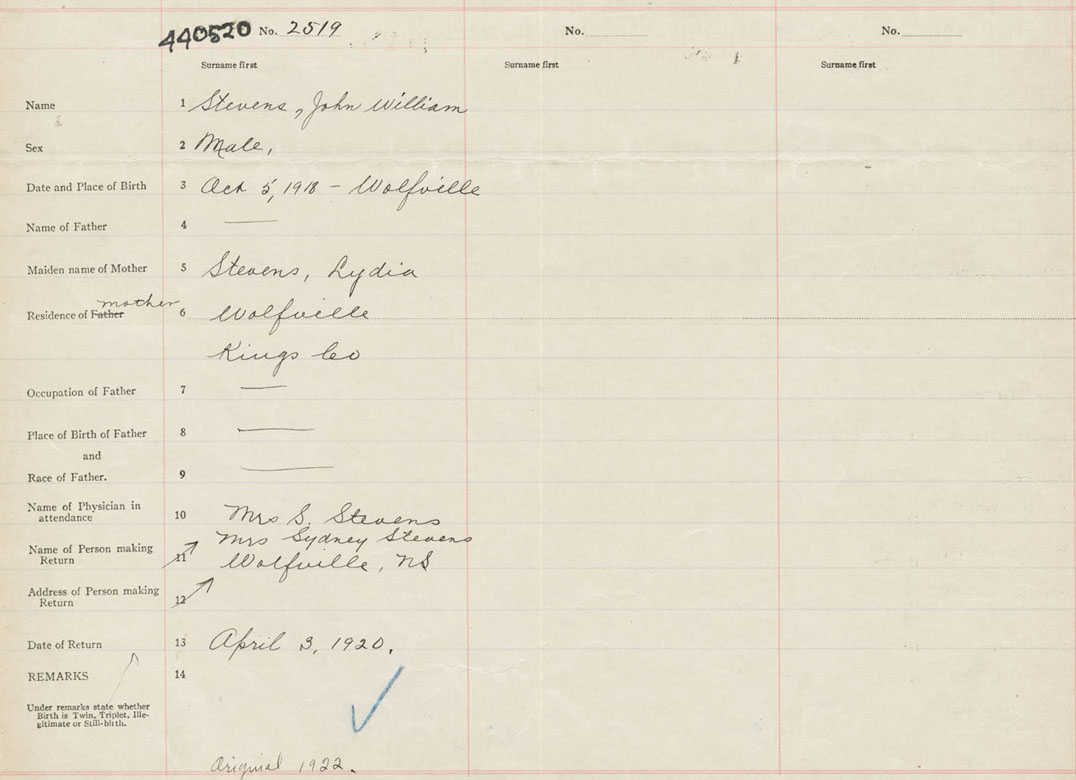 440520 No. 2519 No. No.
Surname first Surname first Surname first
Name 1 Stevens, John William
Sex 2 Male,
Date and Place of Birth 3 Oct 5, 1918 - Wolfville
Name of Father 4 —
Maiden name of Mother 5 Stevens, Lydia
mother
Residence of Father 6 Wolfville
Kings Co
Occupation of Father 7 —
Place of Birth of Father 8 —
and
Race of Father. 9 —
Name of Physician in
attendance 10 Mrs S. Stevens
Mrs Sydney Stevens
Name of Person making
Return 11 Wolfville, NS
Address of Person making
Return 12
Date of Return 13 April 3, 1920.
REMARKS 14
Under remarks state whether
Birth is Twin, Triplet, Ille-
gitimate or Still-birth.
Original 1922.